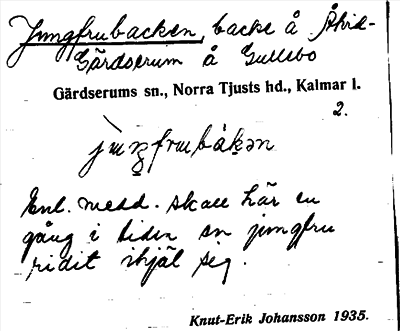 Jungfrubacken, backe å Åtvid-
Gärdserum å Gullebo
Gärdserums sn., Norra Tjusts hd., Kalmar l.
2.
Enl. medd. skall här en
gång i tiden en jungfru
ridit ihjäl sig.
Knut-Erik Johansson 1935.